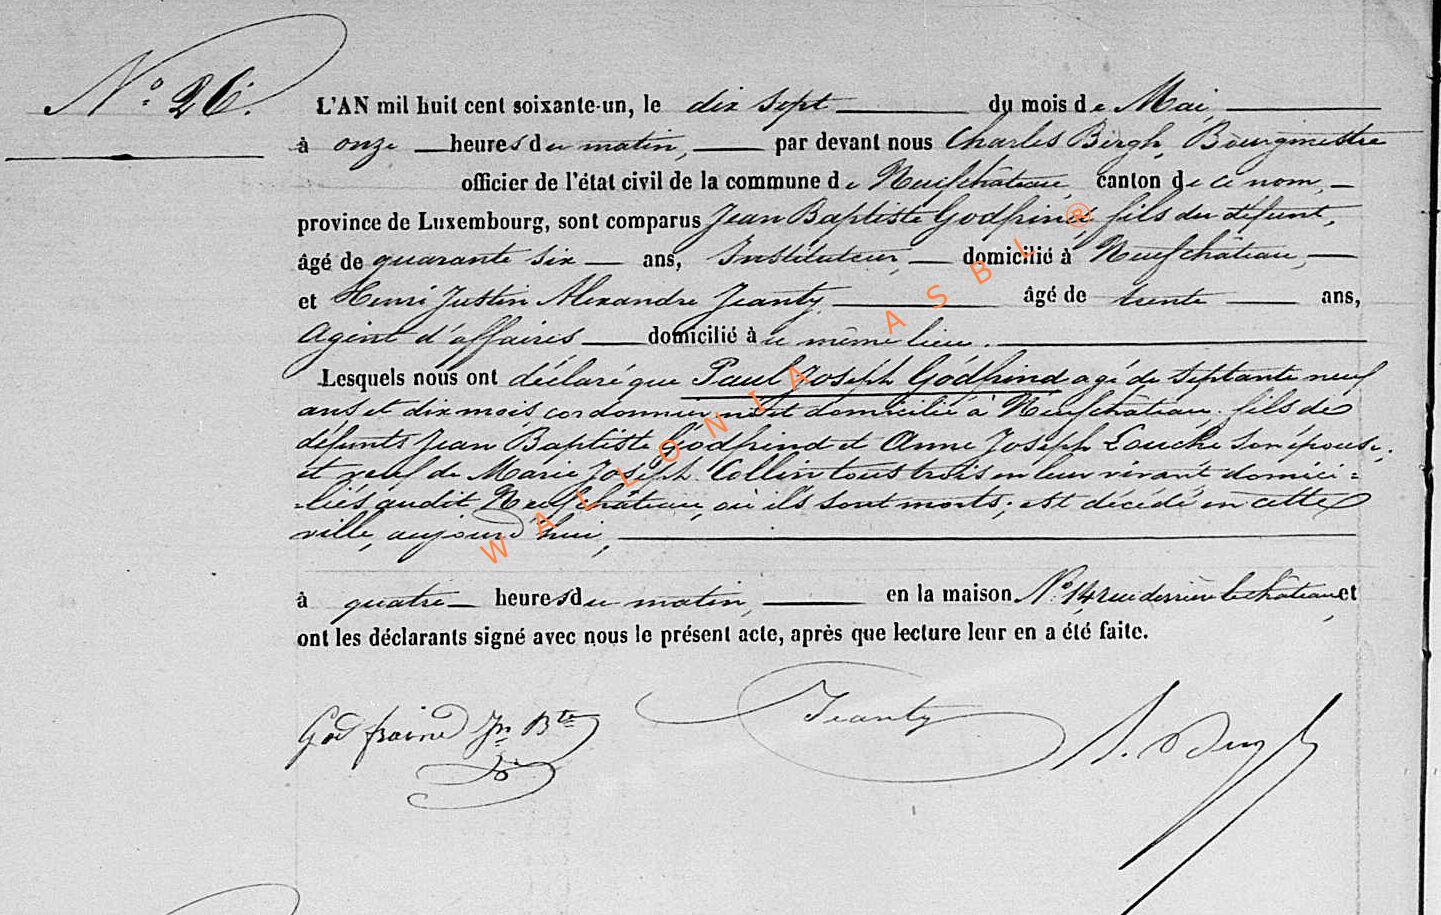 N° 26.
L'AN mil huit cent soixante-un, le dix sept du mois de Mai,
à onze heures du matin, par devant nous Charles Bergh, Bourgmestre
officier de l'état civil de la commune de Neufchâteau, canton de ce nom,
province de Luxembourg, sont comparus Jean Baptiste Godfrind, fils du défunt,
âgé de quarante six ans, Instituteur, domicilié à Neufchâteau,
et Henri Justin Alexandre Jeanty, âgé de trente ans,
Agent d'affaires domicilié à ce même lieu.
Lesquels nous ont déclaré que Paul Joseph Godfrind agé de septante neuf
ans et dix mois, cordonnier né et domicilié à Neufchâteau, fils de
défunts Jean Baptiste Godfrind et Anne Joseph Louche son épouse,
et veuf de Marie Joseph Collin tous trois en leur vivant domici-
-liés audit Neufchâteau, où ils sont morts; est décédé en cette
ville, aujourd'hui,
à quatre heures du matin, en la maison N° 14 rue derrière le château, et
ont les déclarants signé avec nous le présent acte, après que lecture leur en a été faite.
Godfroind Jn Bte
Jeanty
Bergh
WALLONIA ASBL ®